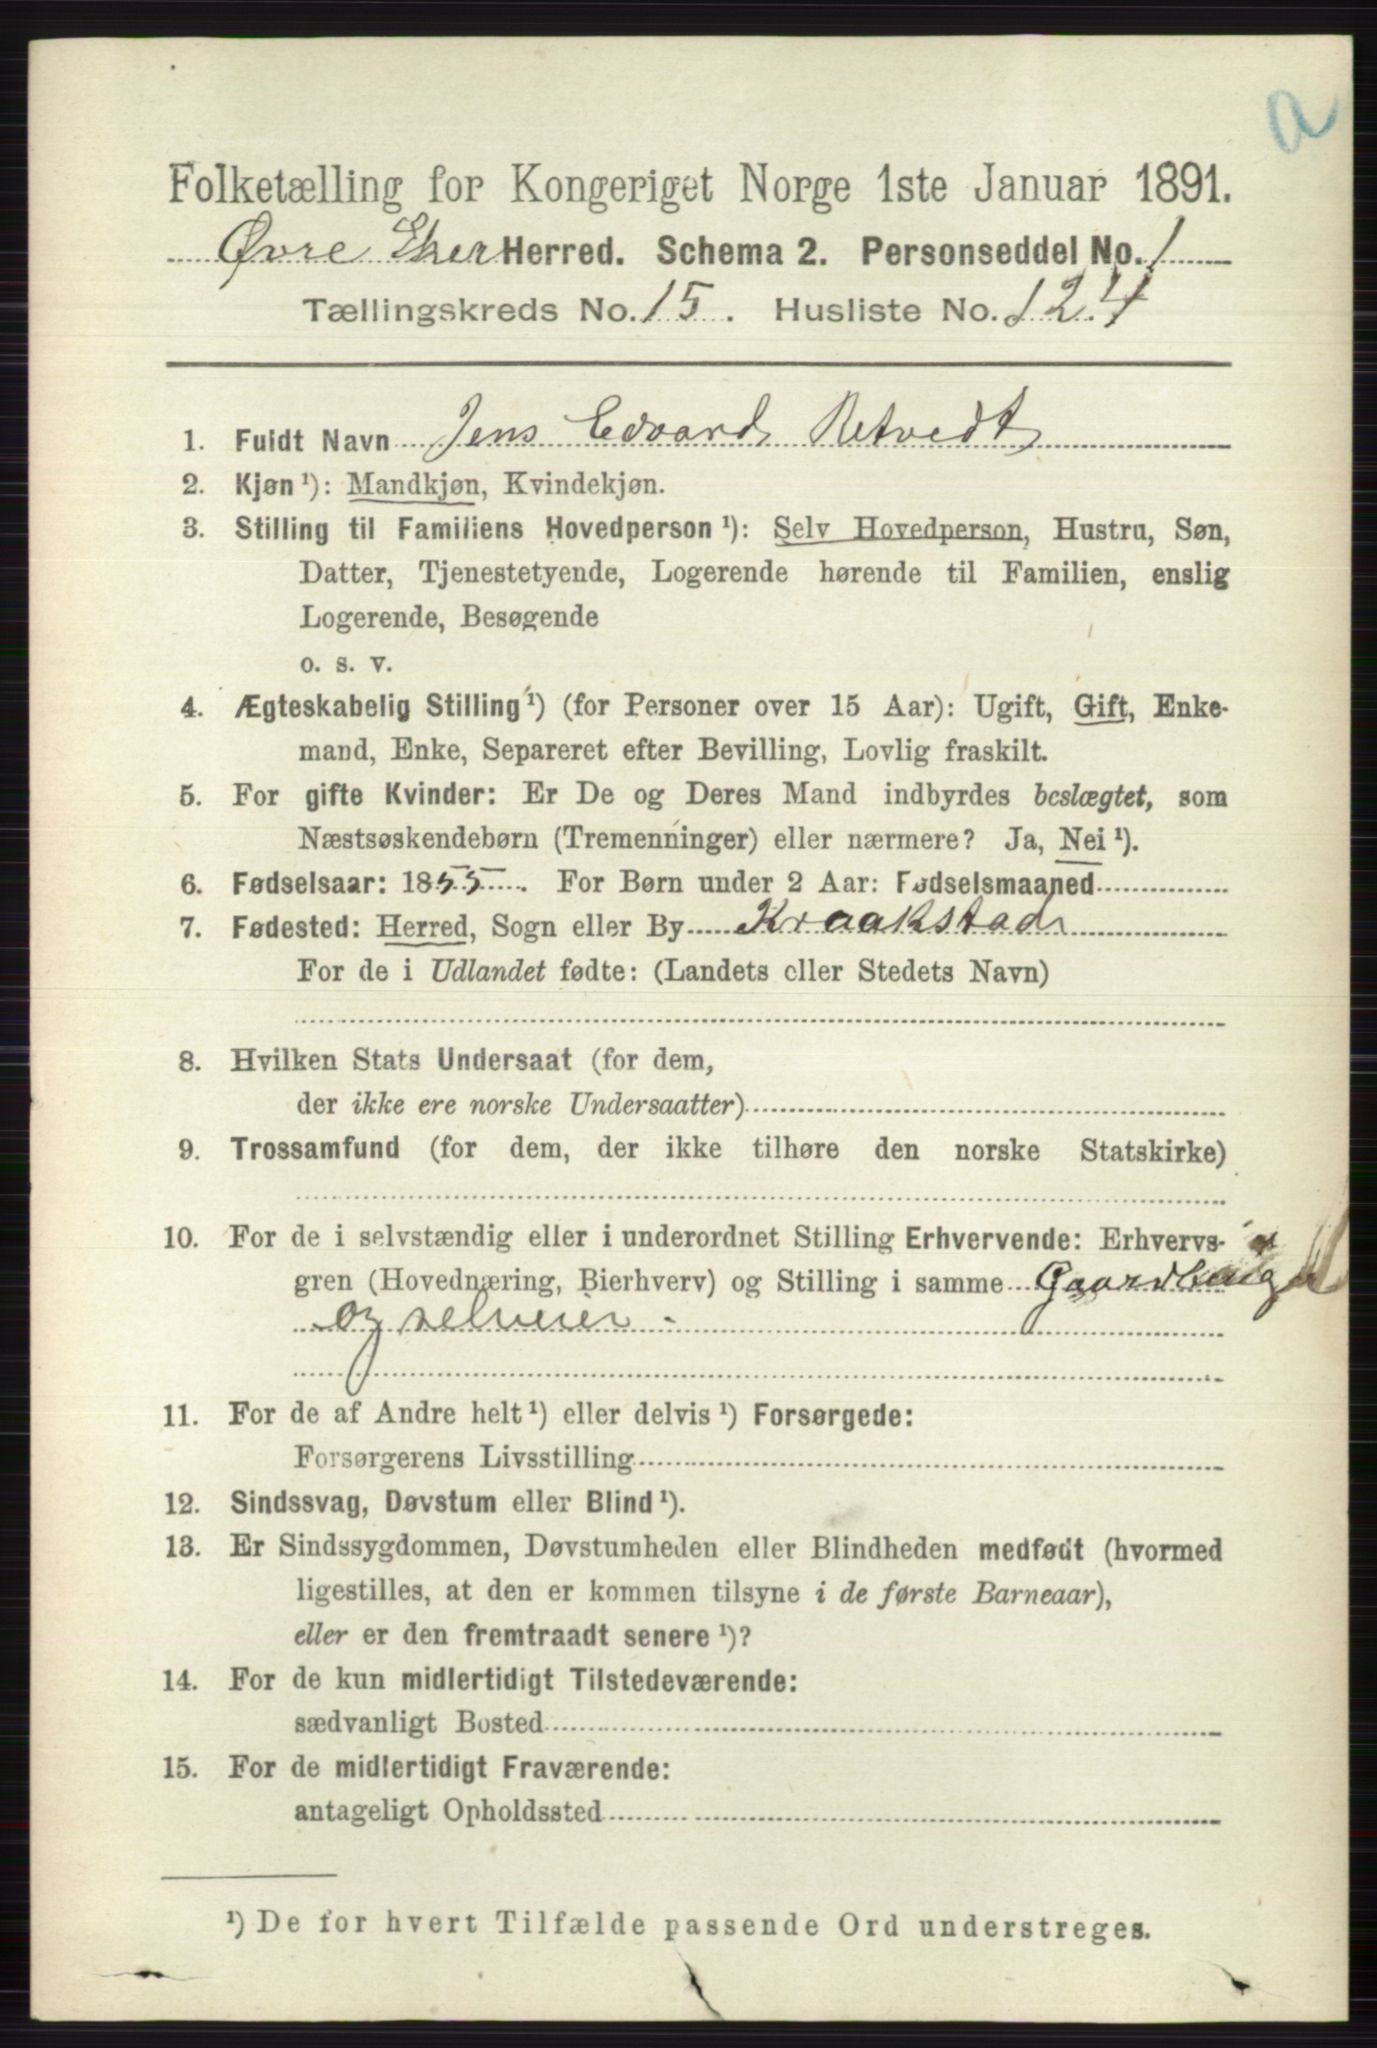 a
Folketælling for Kongeriget Norge 1ste Januar 1891.
Øvre Eker Herred. Schema 2. Personseddel No. 1
Tællingskreds No. 15. Husliste No. 124
1. Fuldt Navn Jens Edvard Retvedt
2. Kjøn ¹): Mandkjøn, Kvindekjøn.
3. Stilling til Familiens Hovedperson ¹): Selv Hovedperson, Hustru, Søn,
Datter, Tjenestetyende, Logerende hørende til Familien, enslig
Logerende, Besøgende
o. s. v.
4. Ægteskabelig Stilling ¹) (for Personer over 15 Aar): Ugift, Gift, Enke-
mand, Enke, Separeret efter Bevilling, Lovlig fraskilt.
5. For gifte Kvinder: Er De og Deres Mand indbyrdes beslægtet, som
Næstsøskendebørn (Tremenninger) eller nærmere? Ja, Nei ¹).
6. Fødselsaar: 1855. For Børn under 2 Aar: Fødselsmaaned
7. Fødested: Herred, Sogn eller By Kraakstad
For de i Udlandet fødte: (Landets eller Stedets Navn)
8. Hvilken Stats Undersaat (for dem,
der ikke ere norske Undersaatter)
9. Trossamfund (for dem, der ikke tilhøre den norske Statskirke)
10. For de i selvstændig eller i underordnet Stilling Erhvervende: Erhvervs-
gren (Hovednæring, Bierhverv) og Stilling i samme
og selveier -
11. For de af Andre helt ¹) eller delvis ¹) Forsørgede:
Forsørgerens Livsstilling
12. Sindssvag, Døvstum eller Blind ¹).
13. Er Sindssygdommen, Døvstumheden eller Blindheden medfødt (hvormed
ligestilles, at den er kommen tilsyne i de første Barneaar),
eller er den fremtraadt senere ¹)?
14. For de kun midlertidigt Tilstedeværende:
sædvanligt Bosted
15. For de midlertidigt Fraværende:
antageligt Opholdssted
¹) De for hvert Tilfælde passende Ord understreges.